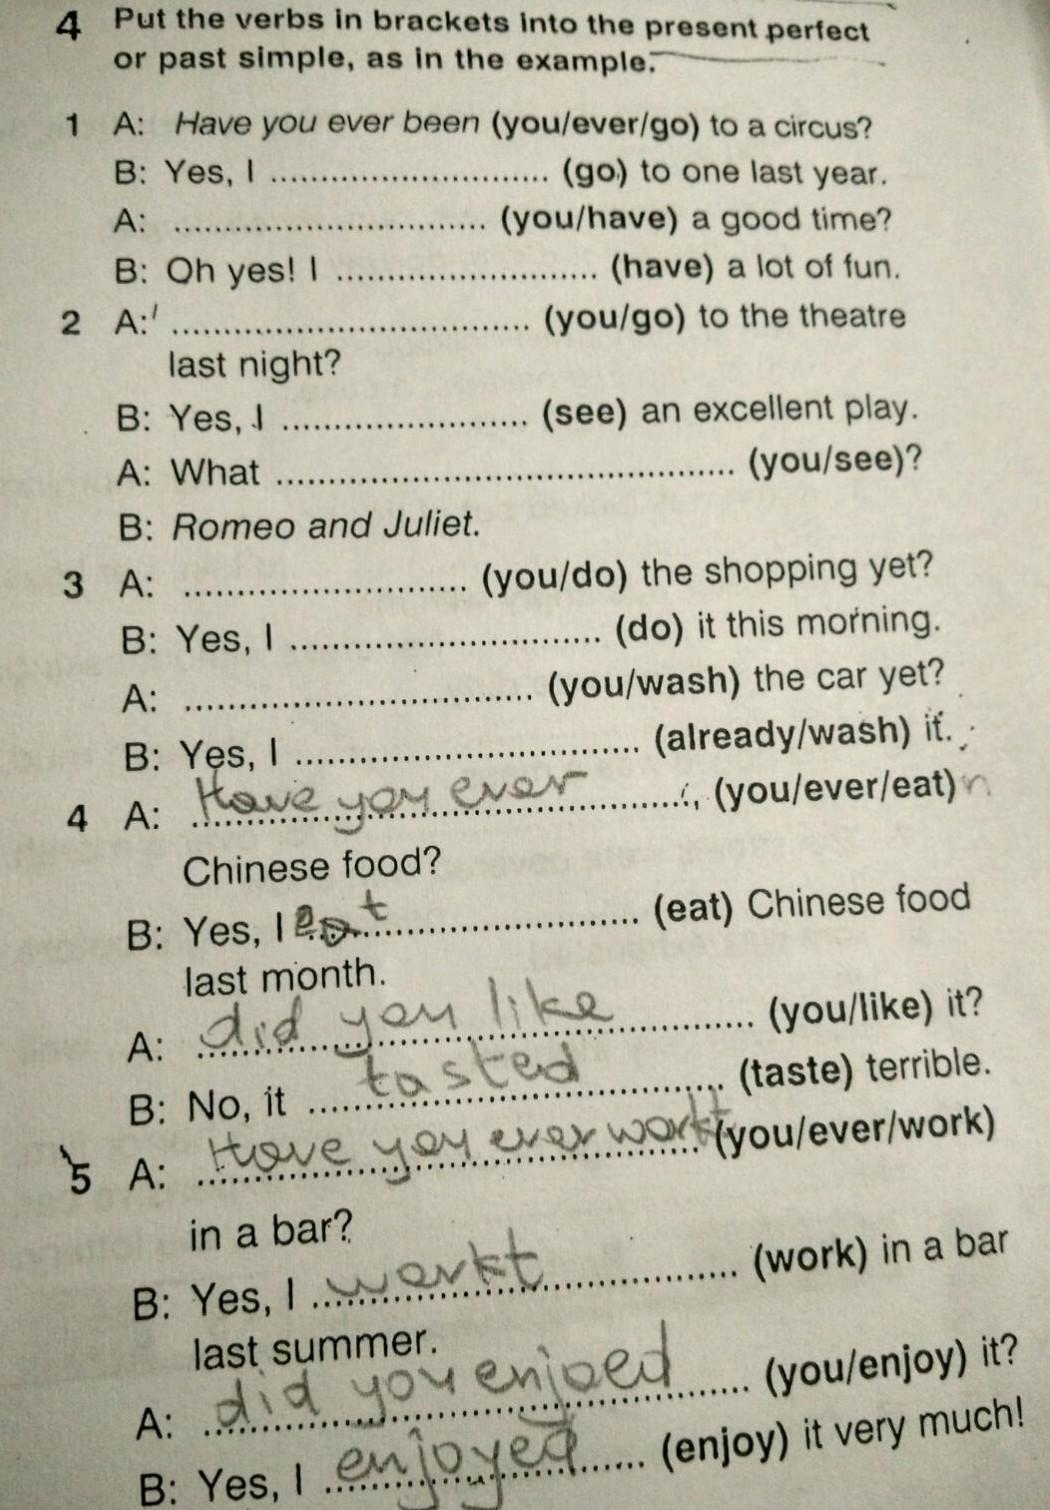 4 Put the verbs in brackets into the present perfect
or past simple, as in the example.
1 A: Have you ever been (you/ever/go) to a circus?
B: Yes, I ............................ (go) to one last year.
A: ................................ (you/have) a good time?
B: Oh yes! I .......................... (have) a lot of fun.
2 A: .................................... (you/go) to the theatre
last night?
B: Yes, I ........................ (see) an excellent play.
A: What .............................................. (you/see)?
B: Romeo and Juliet.
3 A: ............................ (you/do) the shopping yet?
B: Yes, I ............................... (do) it this morning.
A: ................................... (you/wash) the car yet?
B: Yes, I .................................. (already/wash) it.
4 A: Have you ever (you/ever/eat) n
Chinese food?
B: Yes, I eat (eat) Chinese food
last month.
A: did you like (you/like) it?
B: No, it tasted (taste) terrible.
5 A: Have you ever workt (you/ever/work)
in a bar?
B: Yes, I workt (work) in a bar
last summer.
A: did you enjoed (you/enjoy) it?
B: Yes, I enjoyed (enjoy) it very much!